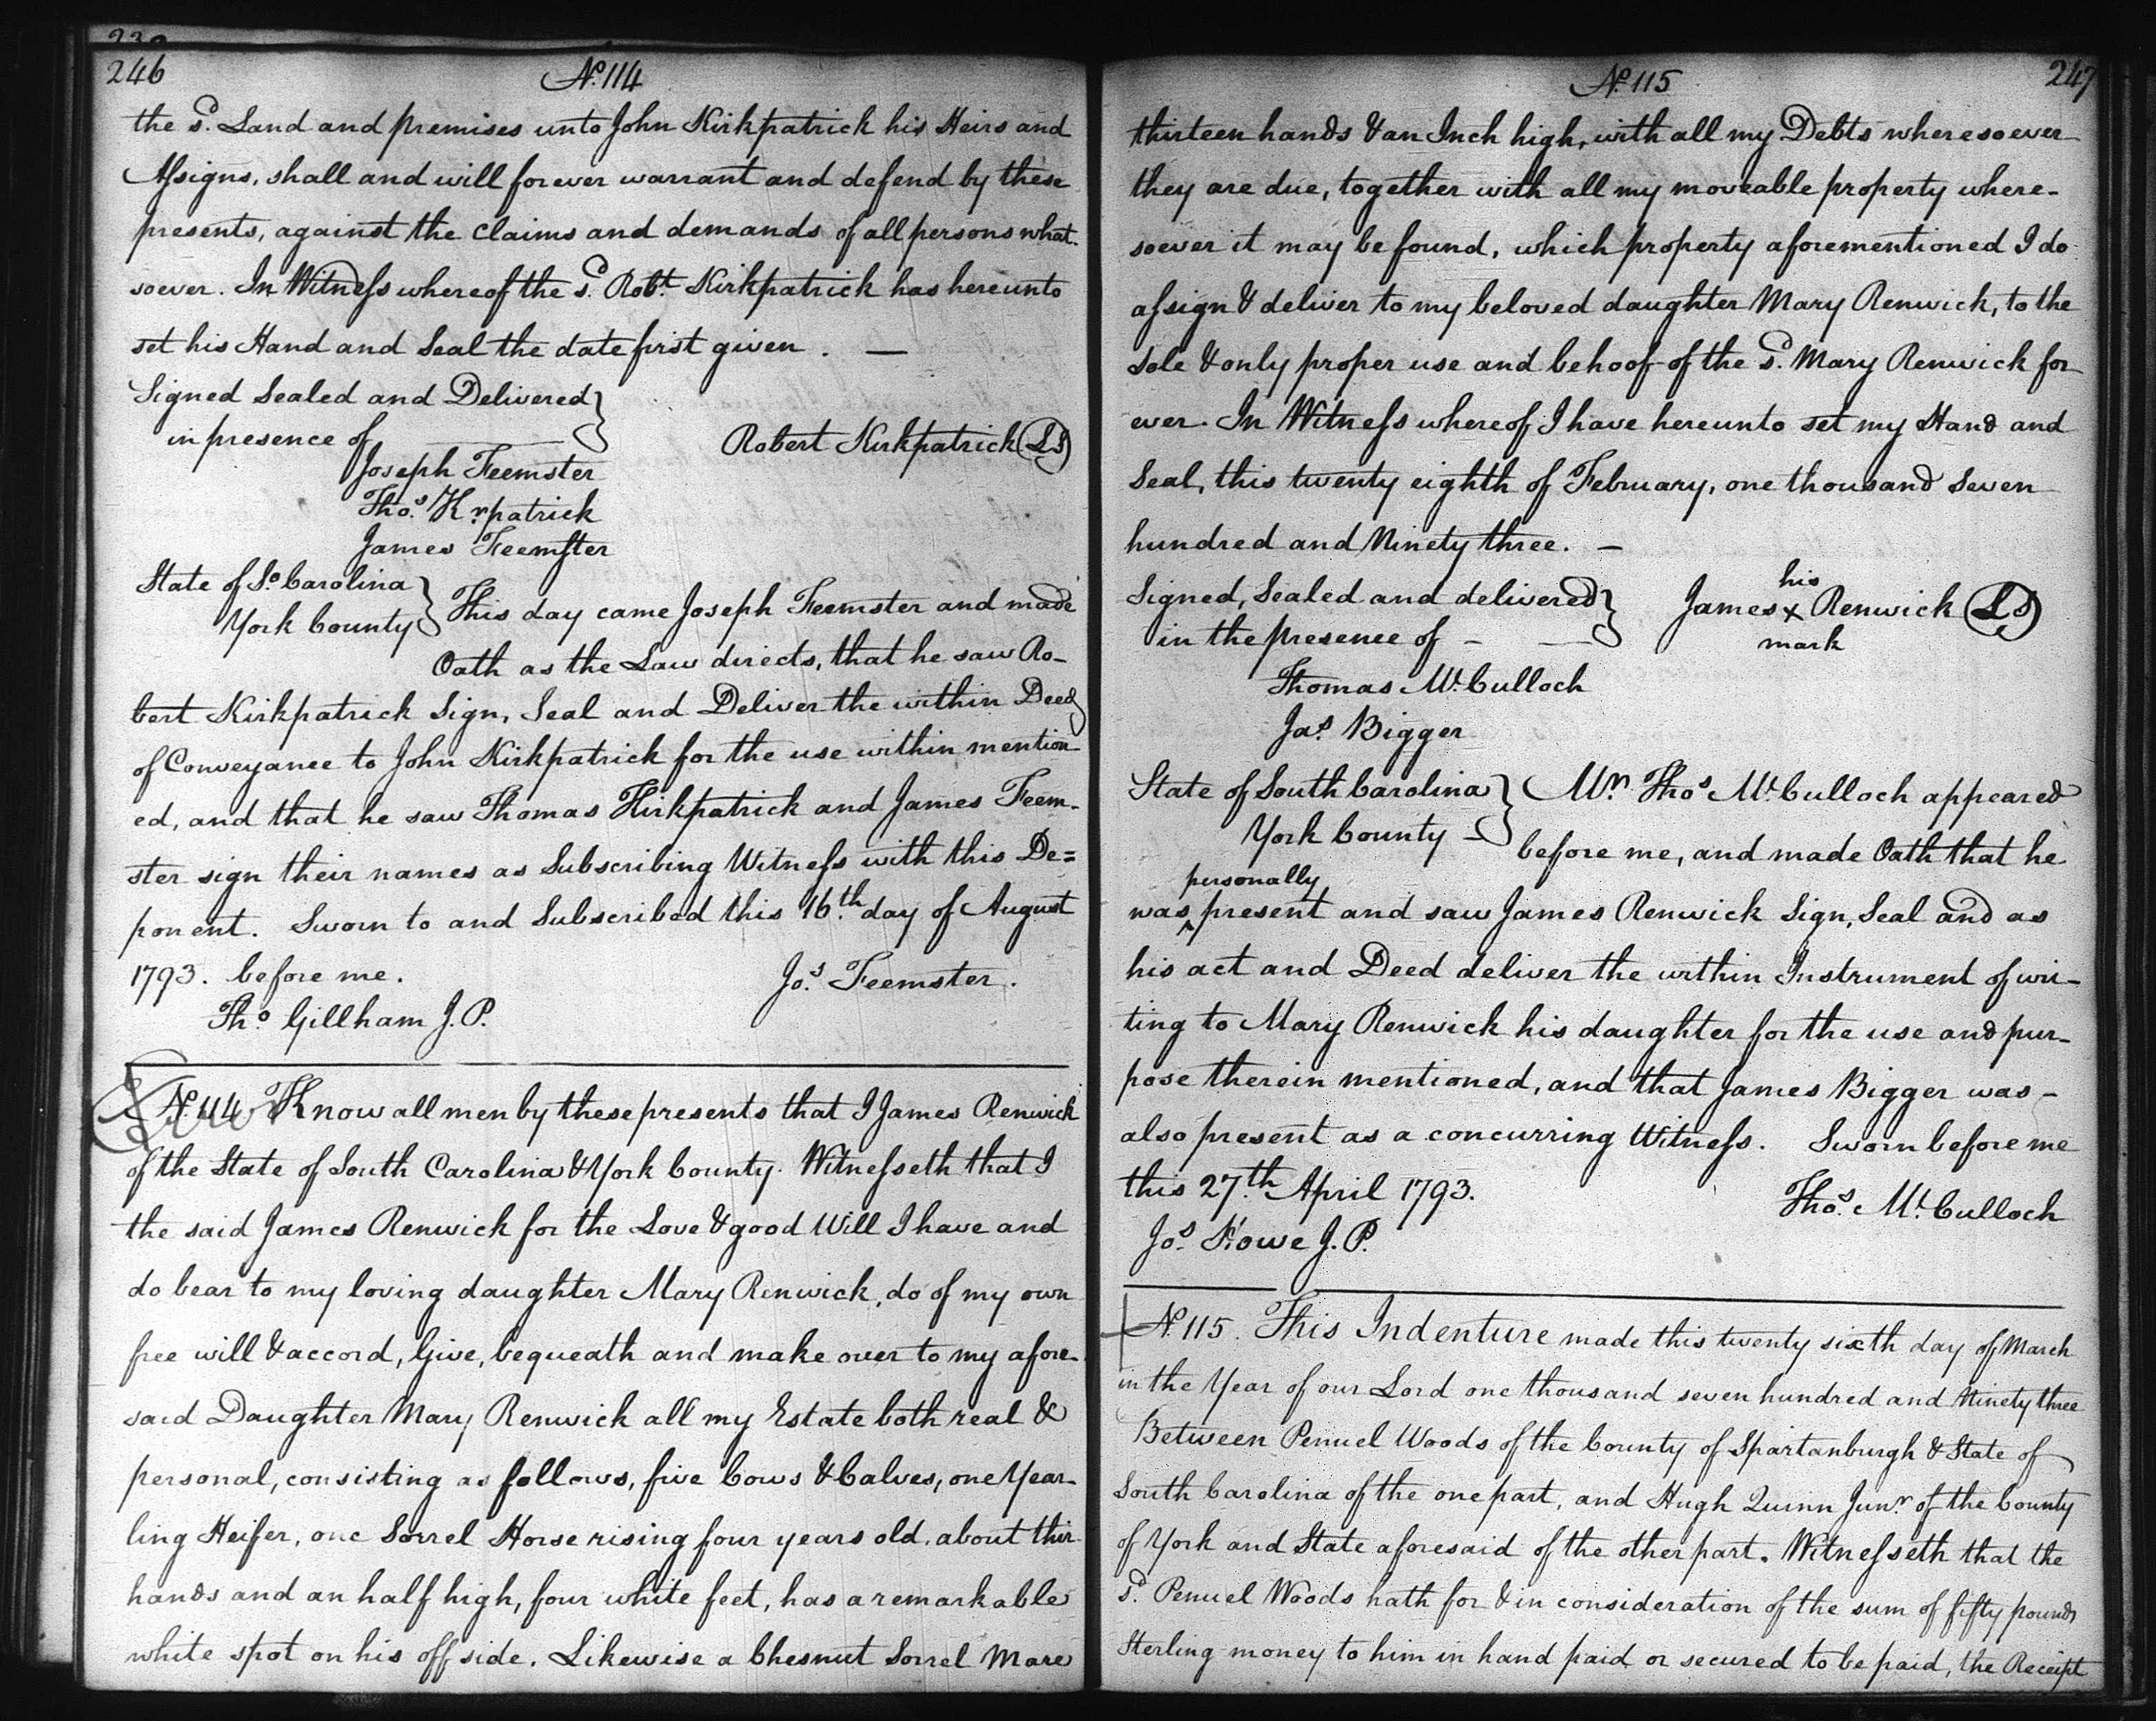 230
246
No. 114
the sd. Land and premises unto John Kirkpatrick his Heirs and
Assigns, shall and will forever warrant and defend by these
presents, against the claims and demands of all persons what-
soever. In Witness whereof the sd. Robt. Kirkpatrick has hereunto
set his Hand and Seal the date first given. —
Signed Sealed and Delivered }
in presence of
Robert Kirkpatrick (LS)
Joseph Feemster
Thos. Krpatrick
James Feemster
State of So. Carolina }
York County } This day came Joseph Feemster and made
Oath as the Law directs, that he saw Ro-
bert Kirkpatrick Sign, Seal and Deliver the within Deed
of Conveyance to John Kirkpatrick for the use within mention-
ed, and that he saw Thomas Kirkpatrick and James Feem-
ster sign their names as Subscribing Witness with this De=
ponent. Sworn to and Subscribed this 16th. day of August
1793. before me. Jos. Feemster.
Tho. Gillham J.P.
No. 114 Know all men by these presents that I James Renwick
of the State of South Carolina & York County. Witnesseth that I
the said James Renwick for the Love & good Will I have and
do bear to my loving daughter Mary Renwick, do of my own
free will & accord, Give, bequeath and make over to my afore-
said Daughter Mary Renwick all my Estate both real &
personal, consisting as follows, five Cows & Calves, one Year-
ling Heifer, one Sorrel Horse rising four years old, about thir-
hands and an half high, four white feet, has a remarkable
white spot on his off side. Likewise a Chesnut Sorrel Mare
No. 115
247
thirteen hands & an Inch high, with all my Debts wheresoever
they are due, together with all my moveable property where-
soever it may be found, which property aforementioned I do
assign & deliver to my beloved daughter Mary Renwick, to the
sole & only proper use and behoof of the sd. Mary Renwick for
ever. In Witness whereof I have hereunto set my Hand and
Seal, this twenty eighth of February, one thousand Seven
hundred and Ninety three. —
Signed, Sealed and delivered }
in the presence of —
his
James x Renwick (LS)
mark
Thomas Mc. Culloch
Jas. Bigger
State of South Carolina }
York County } Mr. Thos. Mc. Culloch appeared
before me, and made Oath that he
personally
was ^ present and saw James Renwick Sign, Seal and as
his act and Deed deliver the within Instrument of wri-
ting to Mary Renwick his daughter for the use and pur-
pose therein mentioned, and that James Bigger was -
also present as a concurring Witness. Sworn before me
this 27.th April 1793. Thos. Mc. Culloch
Jos. Howe J.P.
No. 115. This Indenture made this twenty sixth day of March
in the Year of our Lord one thousand seven hundred and Ninety three
Between Penuel Woods of the County of Spartanburgh & State of
South Carolina of the one part, and Hugh Quinn Junr. of the County
of York and State aforesaid of the other part. Witnesseth that the
sd. Penuel Woods hath for & in consideration of the sum of fifty pounds
Sterling money to him in hand paid or secured to be paid, the Receipt